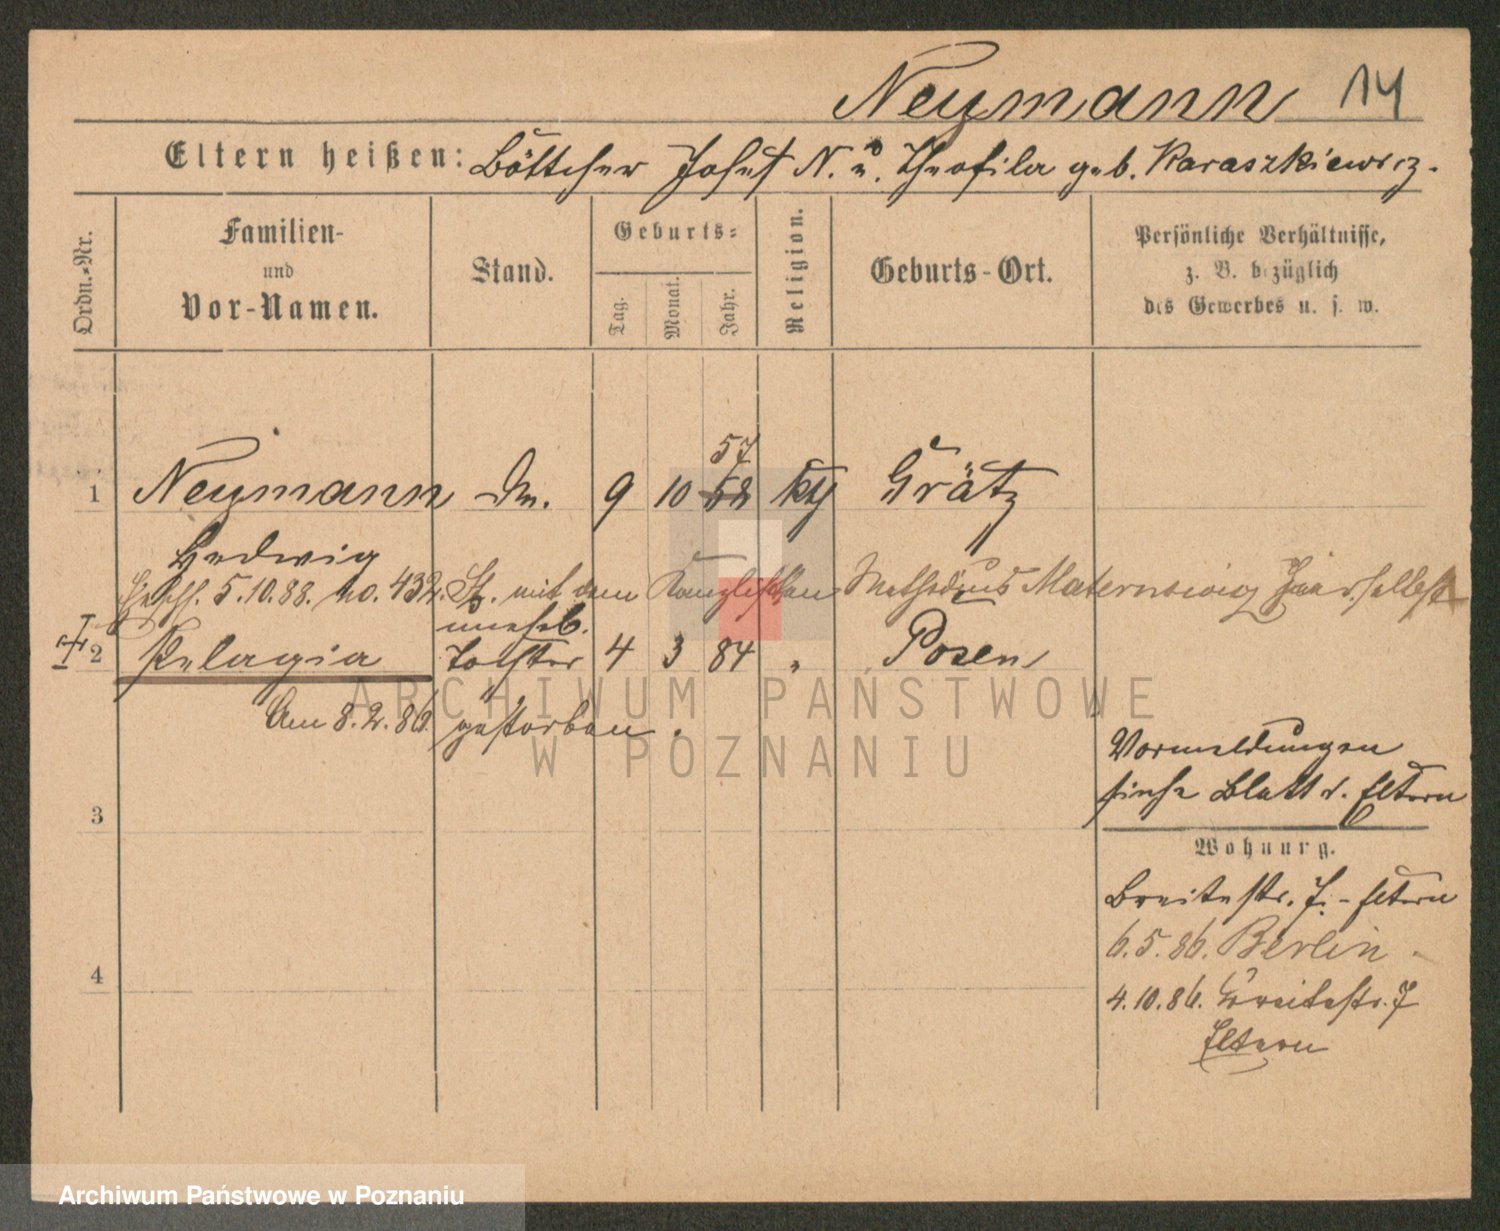 Neymann 14
Eltern heißen: Böttcher Josef N. u. Theofila geb. Karaszkiewicz.
Ordn.-Nr.
Familien- und Vor-Namen.
Stand.
Geburts-
Tag. Monat. Jahr.
Religion.
Geburts-Ort.
Persönliche Verhältnisse,
z. B. bezüglich
des Gewerbes u. s. w.
57
1 Neymann 9 10 58 kth Grätz
Hedwig
5.10.88. No. 432. mit dem Kanzlisten Methodius
unehel.
2 Pelagia Tochter 4 3 84 " Posen
Am 8.2.86 gestorben.
Vormeldungen
siehe Blatt d. Eltern
3
Wohnung.
Breitestr. 7. - Eltern
6.5.86. Berlin -
4 4.10.86. Breitestr. 7
Eltern
ARCHIWUM PAŃSTWOWE
W POZNANIU
Archiwum Państwowe w Poznaniu